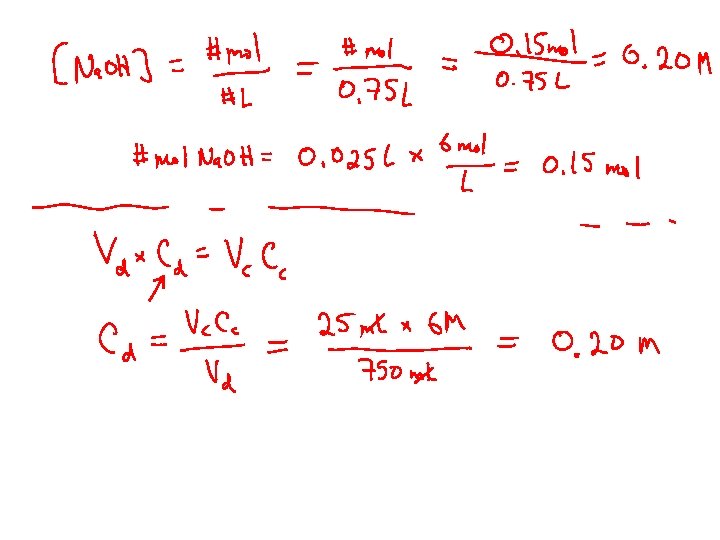 [NaOH] = #mol/#L = #mol/0.75L = 0.15mol/0.75L = 0.20M
#mol NaOH = 0.025L × 6mol/L = 0.15 mol
V_d × C_d = V_c C_c
C_d = V_c C_c/V_d = 25 mL × 6M/750 mL = 0.20 M